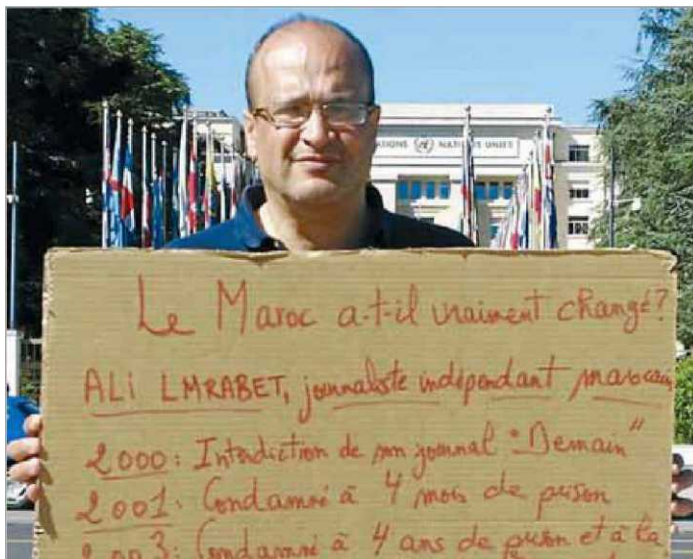 NATIONS NATIONS UNIES
Le Maroc a-t-il vraiment changé?
ALi LMRABET, journaliste indépendant marocain
2000: Interdiction de mon journal "Demain"
2001: Condamné à 4 mois de prison
2003: Condamné à 4 ans de prison et à la